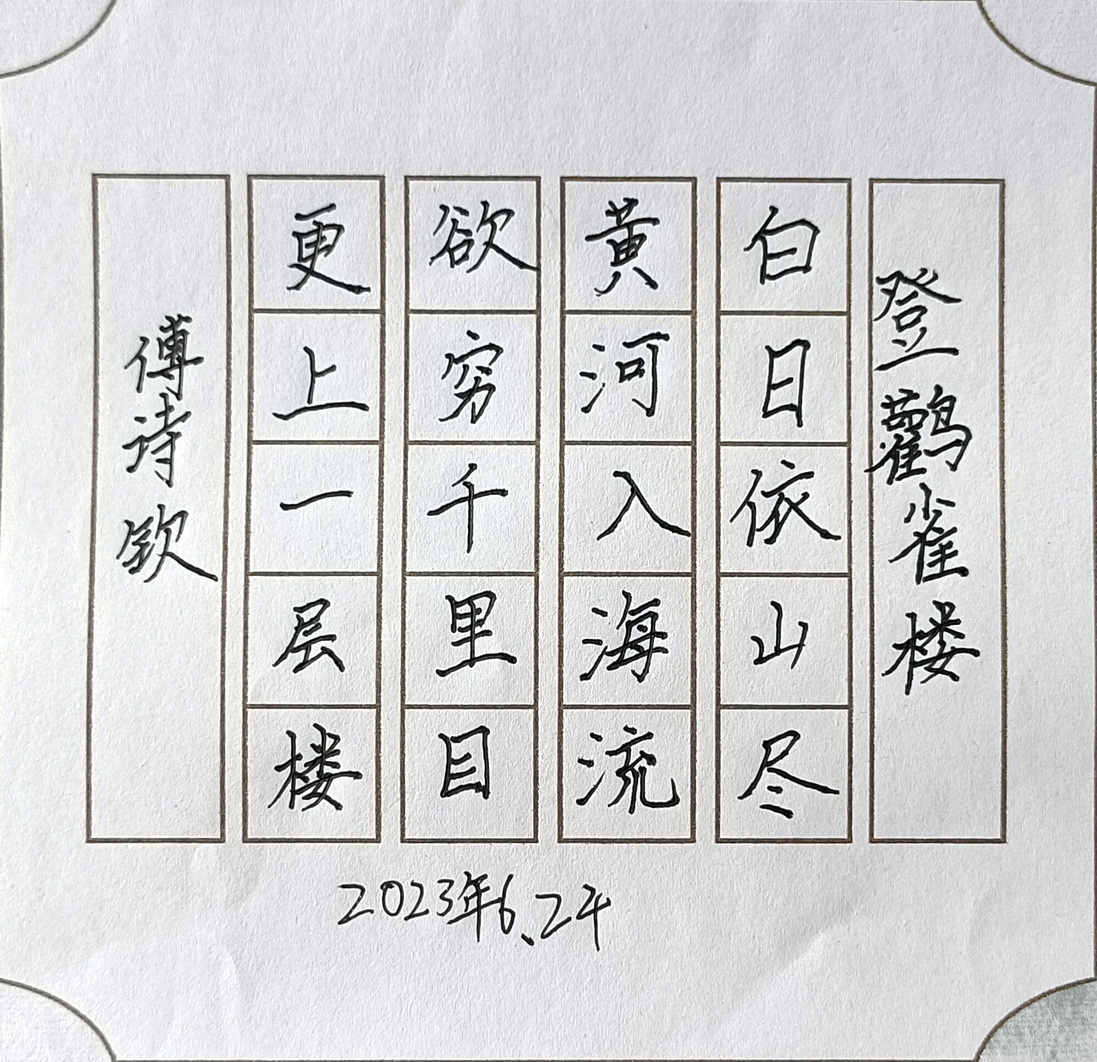 登鹳雀楼
白日依山尽
黄河入海流
欲穷千里目
更上一层楼
傅诗钦
2023年6.24